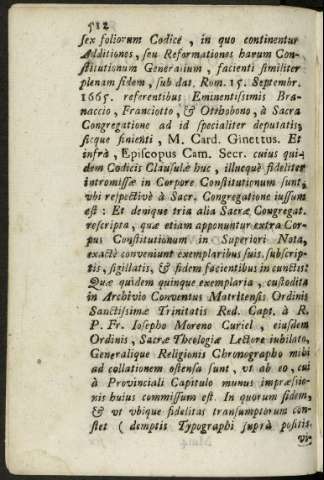 512
sex foliorum Codice, in quo continentur
Additiones, seu Reformationes harum Con-
stitutionum Generalium, facienti similiter
plenam fidem, sub dat. Rom. 15. Septembr.
1665. referentibus Eminentissimis Bra-
naccio, Franciotto, & Otthobono, à Sacra
Congregatione ad id specialiter deputatis,
sicque finienti, M. Card. Ginettus. Et
infrà, Episcopus Cam. Secr. cuius qui-
dem Codicis Clausulæ huc, illucquè fideliter
intromissæ in Corpore Constitutionum sunt,
vbi respectivè à Sacr. Congregatione iussum
est: Et denique tria alia Sacræ Congregat.
rescripta, quæ etiam apponuntur extra Cor-
pus Constitutionum in Superiori Nota,
exactè conveniunt exemplaribus suis, subscrip-
tis, sigillatis, & fidem facientibus in cunctis:
Quæ quidem quinque exemplaria, custodita
in Archivio Conventus Matritensis Ordinis
Sanctissimæ Trinitatis Red. Capt. à R.
P. Fr. Iosepho Moreno Curiel, eiusdem
Ordinis, Sacræ Theologiæ Lectore iubilato,
Generalique Religionis Chronographo mihi
ad collationem ostensa sunt, vt ab eo, cui
à Provinciali Capitulo munus impræssio-
nis huius commissum est. In quorum fidem,
& vt vbique fidelitas transumptorum con-
stet (demptis Typographi suprà positis